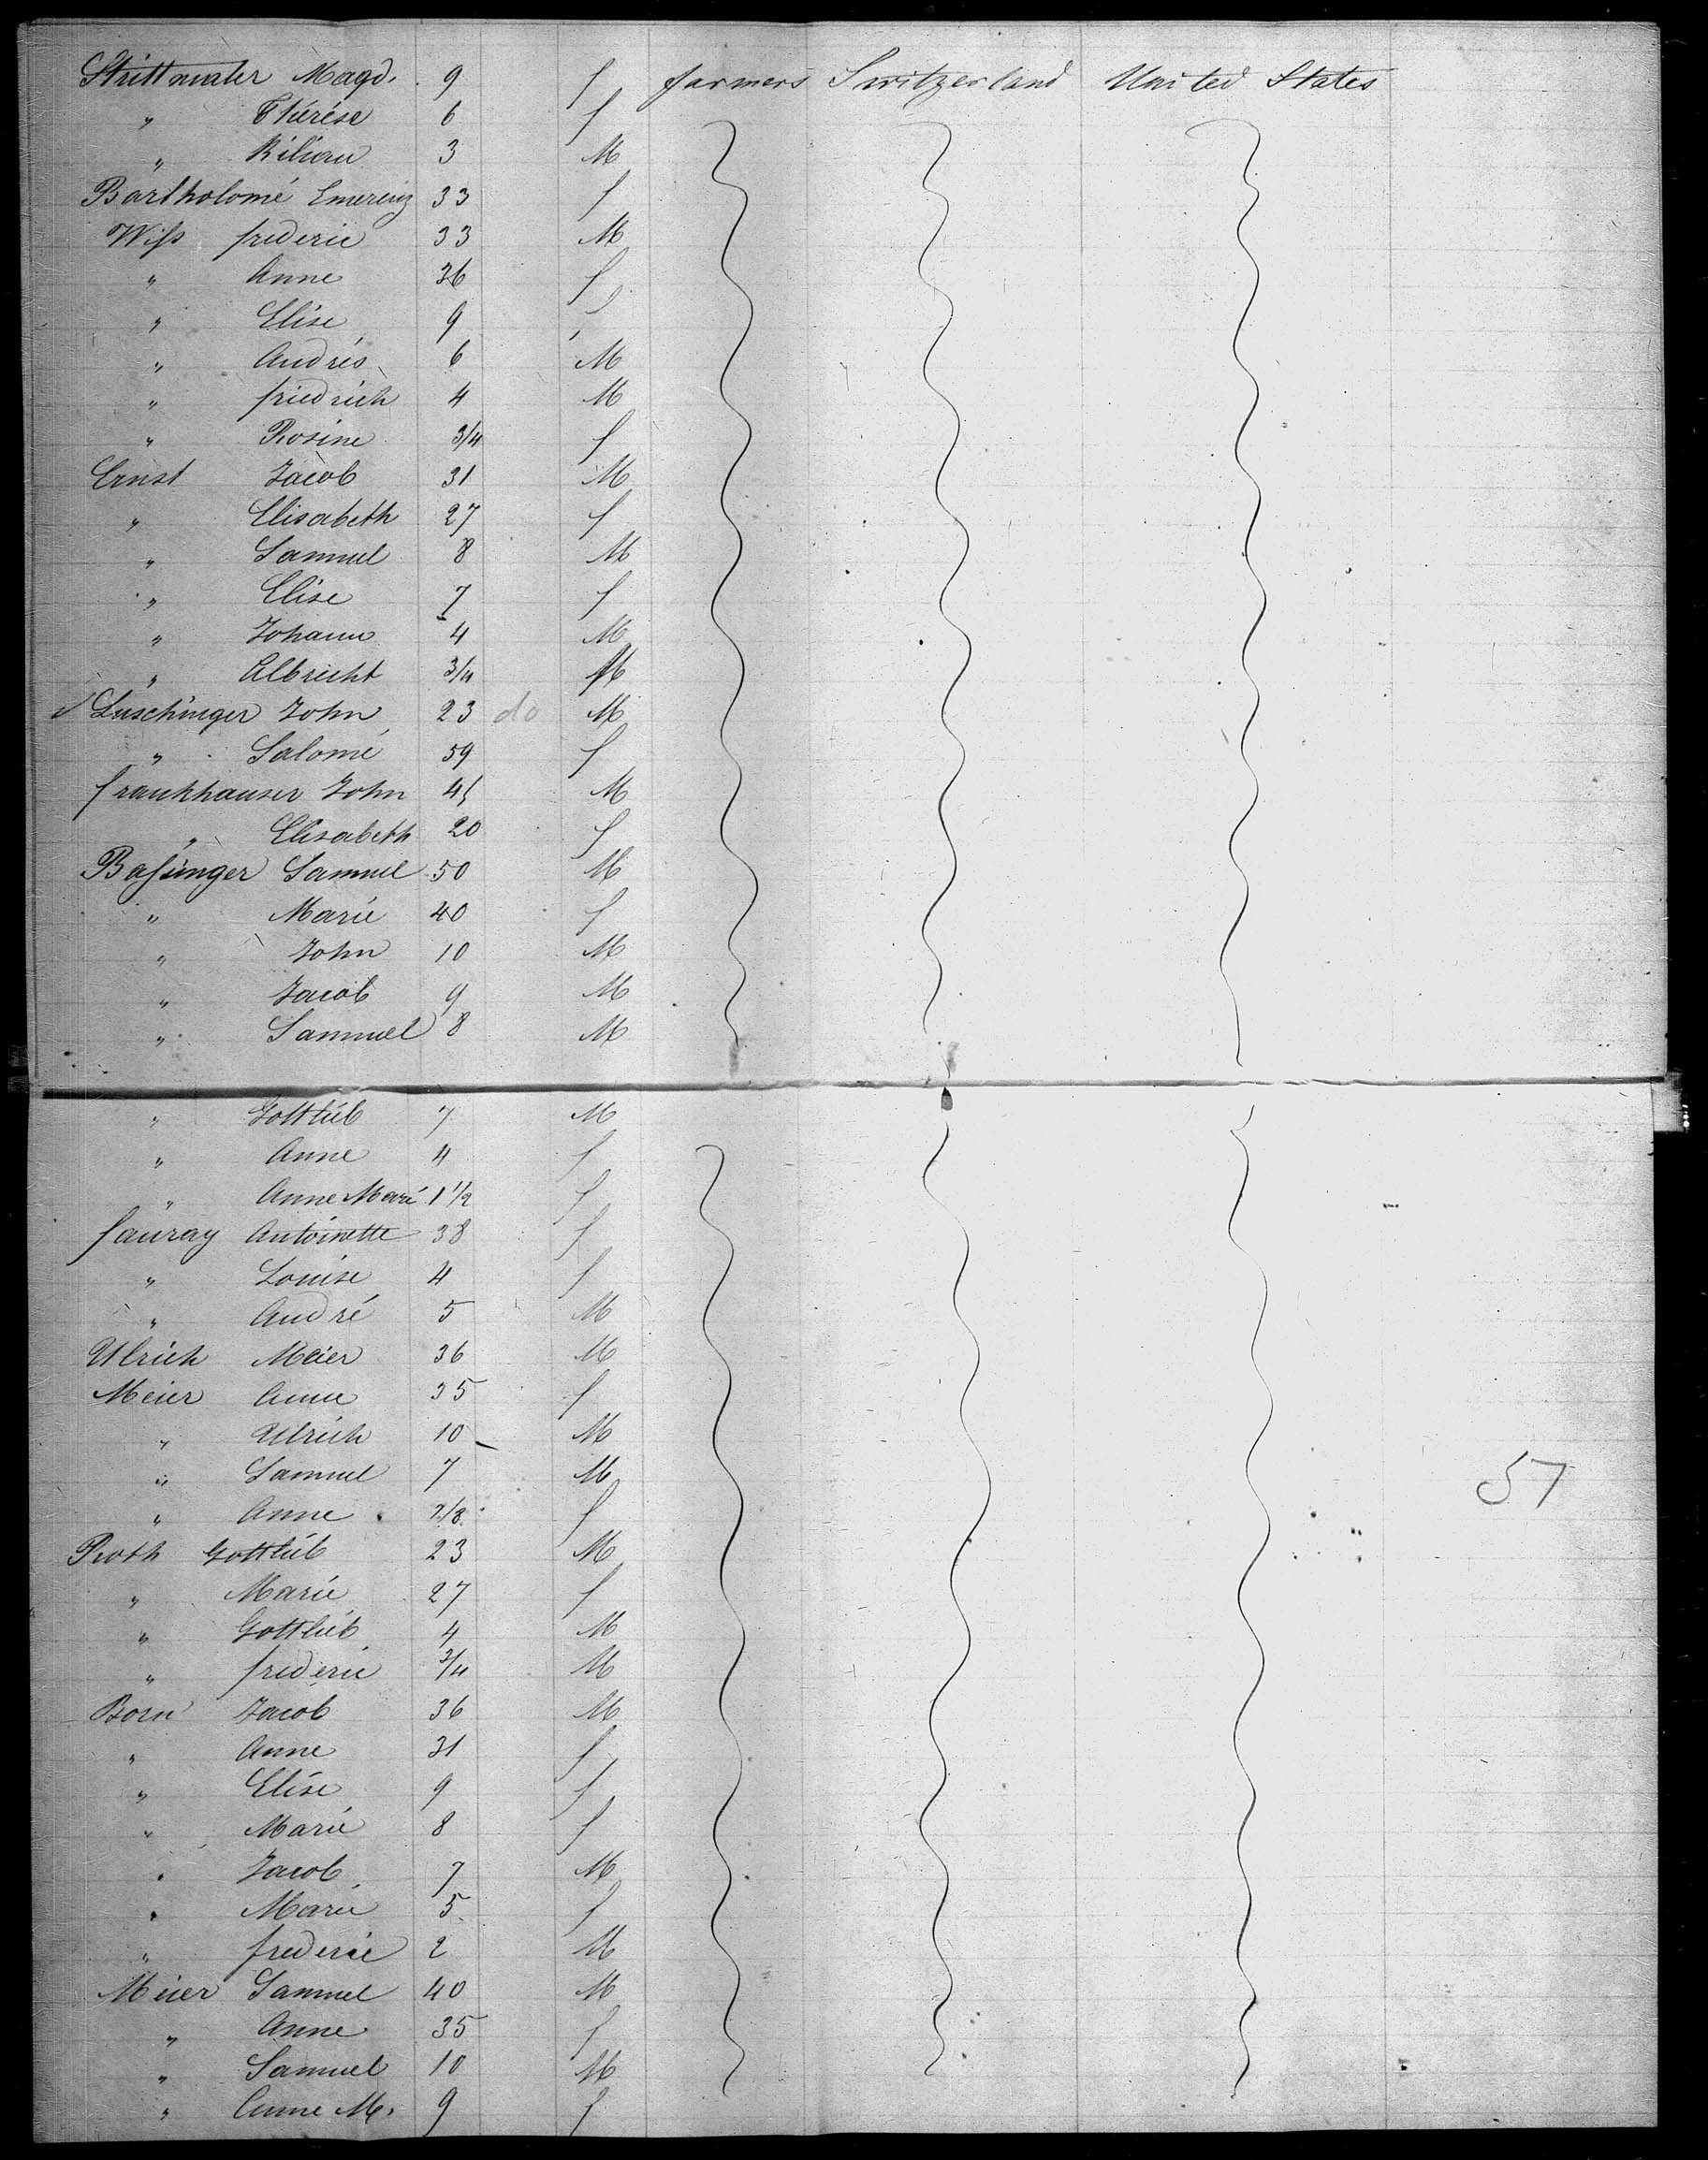 Strittmater Magd. 9 f farmers Switzerland United States
" Thérése 6 f
" Kilian 3 M
Bartholomé Emerenz 33 f
Wiss frederic 33 M
" Anne 36 f
" Elise 9 f
" Andrés 6 M
" friedrich 4 M
" Rosine 3/4 f
Ernst Jacob 31 M
" Elisabeth 27 f
" Samuel 8 M
" Elise 7 f
" Johann 4 M
" Albrecht 3/4 M
Luschinger John 23 do M
" Salomé 59 f
frankhauser John 45 M
" Elisabeth 20 f
Bassinger Samuel 50 M
" Marie 40 f
" John 10 M
" Jacob 9 M
" Samuel 8 M
" Gottlieb 7 M
" Anne 4 f
" Anne Marie 1 1/2 f
fauray Antoinette 38 f
" Louise 4 f
" André 5 M
Ulrich Meier 36 M
Meier Anne 35 f
" Ulrich 10 M
" Samuel 7 M
" Anne f
Roth Gottlieb 23 M
" Marie 27 f
" Gottlieb 4 M
" frederic 3/4 M
Born Jacob 36 M
" Anne 31 f
" Elise 9 f
" Marie 8 f
" Jacob 7 M
" Marie 5 f
" frederic 2 M
Meier Samuel 40 M
" Anne 35 f
" Samuel 10 M
" Anne M. 9 f
57